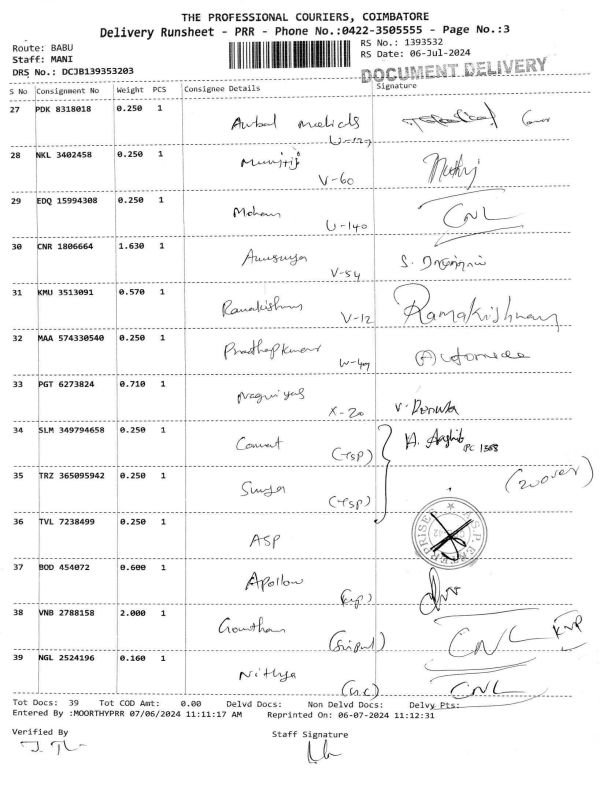 THE PROFESSIONAL COURIERS, COIMBATORE
Delivery Runsheet - PRR - Phone No.:0422-3505555 - Page No.:3
Route: BABU
Staff: MANI
DRS No.: DCJB139353203
RS No.: 1393532
RS Date: 06-Jul-2024
DOCUMENT DELIVERY
S No Consignment No Weight PCS Consignee Details Signature
27 PDK 8318018 0.250 1
28 NKL 3402458 0.250 1 V-60
29 EDQ 15994308 0.250 1 Mohan U-140 CNL
30 CNR 1806664 1.630 1 Anusuya V-54
31 KMU 3513091 0.570 1 Ramakishnn V-12 Ramakrishnan
32 MAA 574330540 0.250 1 Pradhap Kumar W-409
33 PGT 6273824 0.710 1 X-20
34 SLM 349794658 0.250 1 (TSP) PC 1368
35 TRZ 365095942 0.250 1 Surya (TSP)
36 TVL 7238499 0.250 1 ASP
37 BOD 454072 0.600 1 Apollow
38 VNB 2788158 2.000 1 Gowtham CNL KVP
39 NGL 2524196 0.160 1 Nithya CNL
Tot Docs: 39 Tot COD Amt: 0.00 Delvd Docs: Non Delvd Docs: Delvy Pts:
Entered By :MOORTHYPRR 07/06/2024 11:11:17 AM Reprinted On: 06-07-2024 11:12:31
Verified By
Staff Signature